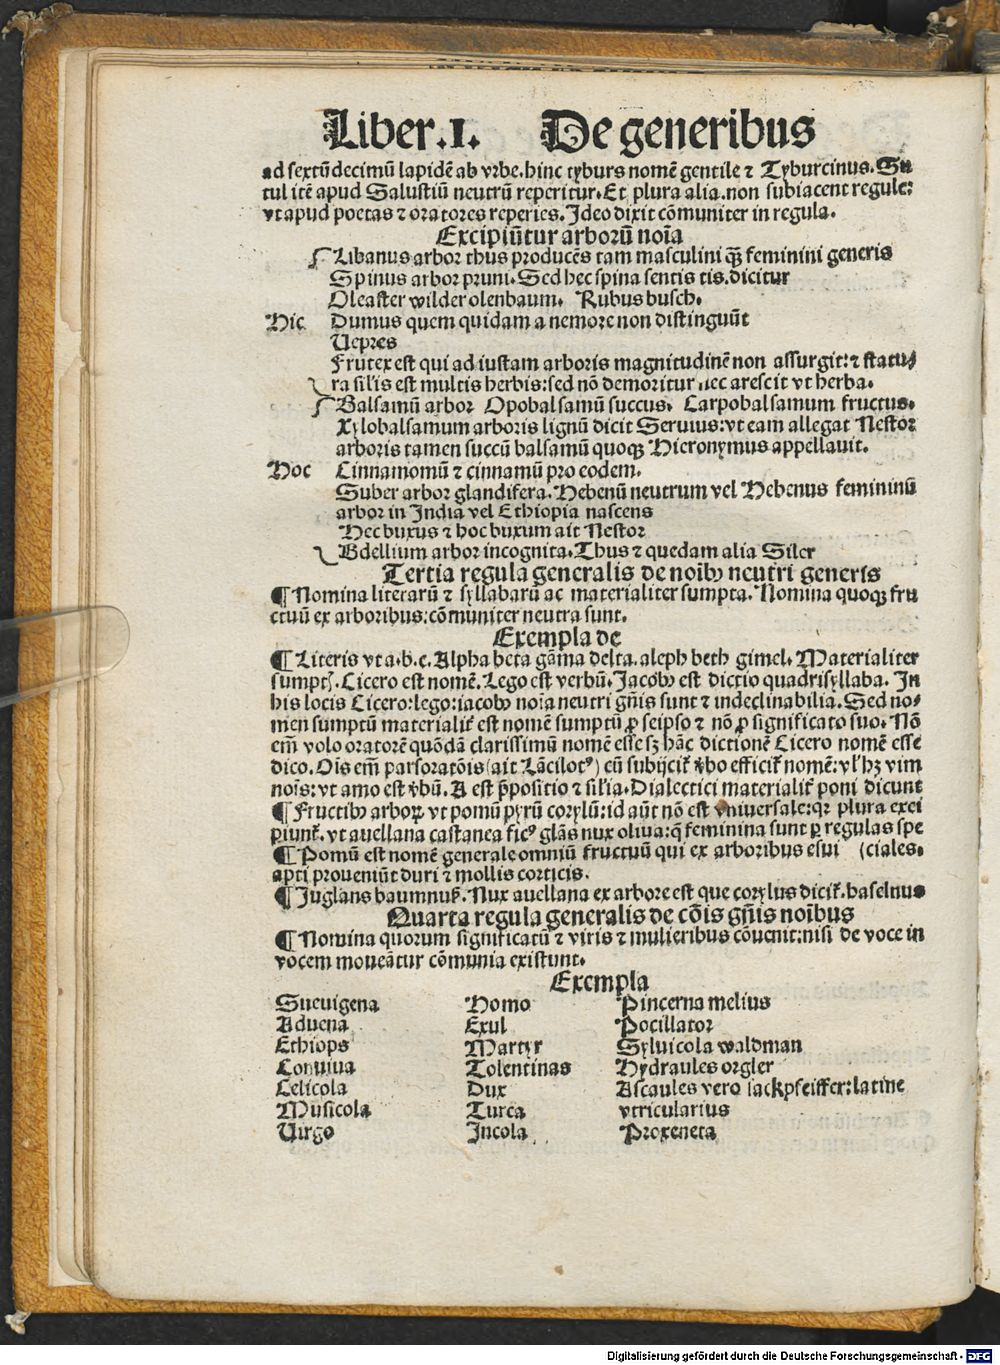 Liber.I. De generibus
ad sextũdecimũ lapidẽ ab vrbe.hinc tyburs nomẽ gentile ⁊ Tyburcinus.Su
tul itẽ apud Salustiũ neutrũ reperitur.Et plura alia.non subiacent regule:
vt apud poetas ⁊ oratores reperies.Ideo dixit cõmuniter in regula.
Excipiũtur arborũ noĩa
Libanus arbor thus producẽs tam masculini qꝫ feminini generis
Spinus arbor pruni.Sed hec spina sentis tis.dicitur
Oleaster wilder olenbaum. Rubus busch.
Hic Dumus quem quidam a nemore non distinguũt
Uepres
Frutex est qui ad iustam arboris magnitudinẽ non assurgit:⁊ statu⸗
ra sil'is est multis herbis:sed nõ demoritur nec arescit vt herba.
Balsamũ arbor Opobalsamũ succus. Carpobalsamum fructus.
Xylobalsamum arboris lignũ dicit Seruius:vt eam allegat Nestor
arboris tamen succũ balsamũ quoqꝫ Hieronymus appellauit.
Hoc Cinnamomũ ⁊ cinnamũ pro eodem.
Suber arbor glandifera.Hebenũ neutrum vel Hebenus femininũ
arbor in India vel Ethiopia nascens
Hec buxus ⁊ hoc buxum ait Nestor
Bdellium arbor incognita.Thus ⁊ quedam alia Siler
Tertia regula generalis de noĩbꝰ neutri generis
¶ Nomina literarũ ⁊ syllabarũ ac materialiter sumpta.Nomina quoqꝫ fru
ctuũ ex arboribus:cõmuniter neutra sunt.
Exempla de
¶ Literis vt a.b.c.Alpha beta gãma delta.aleph beth gimel.Materialiter
sumptꝭ.Cicero est nomẽ.Lego est verbũ.Jacobꝰ est dictio quadrisyllaba. In
his locis Cicero:lego:iacobꝰ noĩa neutri gñis sunt ⁊ indeclinabilia.Sed no⸗
men sumptũ materialiť est nomẽ sumptũ ꝓ seipso ⁊ nõ ꝓ significato suo.Nõ
em̃ volo oratorẽ quõdã clarissimũ nomẽ esse sꝫ hãc dictionẽ Cicero nomẽ esse
dico.Oĩs em̃ pars oratõis (ait Lãcilotꝰ) cũ subijciť ṽbo efficiť nomẽ:vl' hꝫ vim
noĩs:vt amo est ṽbũ.A est p̃positio ⁊ sil'ia.Dialectici materialiť poni dicunt
¶ Fructibꝰ arboꝝ vt pomũ pyrũ corylũ:id aũt nõ est vniuersale:qꝛ plura exci
piunť.vt auellana castanea ficꝰ glãs nux oliua:q̃ feminina sunt ꝑ regulas spe
¶ Pomũ est nomẽ generale omniũ fructuũ qui ex arboribus esui (ciales.
apti proueniũt duri ⁊ mollis corticis.
¶ Juglans baumnuß.Nux auellana ex arbore est que corylus diciť.haselnus
Quarta regula generalis de cõis gñis noĩbus
¶ Nomina quorum significatũ ⁊ viris ⁊ mulieribus cõuenit:nisi de voce in
vocem moueãtur cõmunia existunt.
Exempla
Sueuigena Homo Pincerna melius
Aduena Exul Pocillator
Ethiops Martyr Syluicola waldman
Conuiua Tolentinas Hydraules orgler
Celicola Dux Ascaules vero sackpfeiffer:latine
Musicola Turca vtricularius
Uirgo Incola Proxeneta
Digitalisierung gefördert durch die Deutsche Forschungsgemeinschaft - DFG